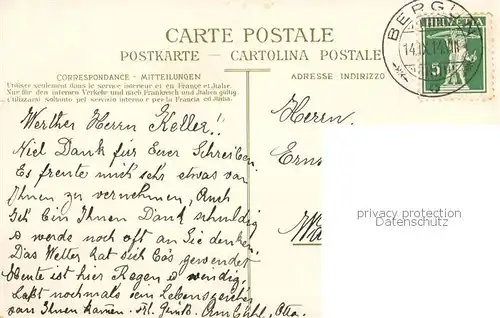 CARTE POSTALE
POSTKARTE - CARTOLINA POSTALE
CORRESPONDANCE - MITTEILUNGEN
ADRESSE-INDIRIZZO
Utiliser seulement dans le service interieur et en France et Italie.
Nur für den internen Verkehr und nach Frankreich und Italien gültig
Utilizzarsi soltanto pel servizio interno e per la Francia ed Italia.
BERGÜN
HELVETIA
5
Werther Herrn Keller!!
Viel Dank für Euer Schreiben.
Es freute mich sehr etwas von
Ihnen zu vernehmen, Auch
Ich bin Ihnen Dank schuldig
werde noch oft an Sie denken.
Das Wetter hat sich gewendet
Heute ist hier Regen windig,
Laßt nochmals ein Lebenszeichen
von Ihnen
Herrn
Erns
privacy protection
Datenschutz